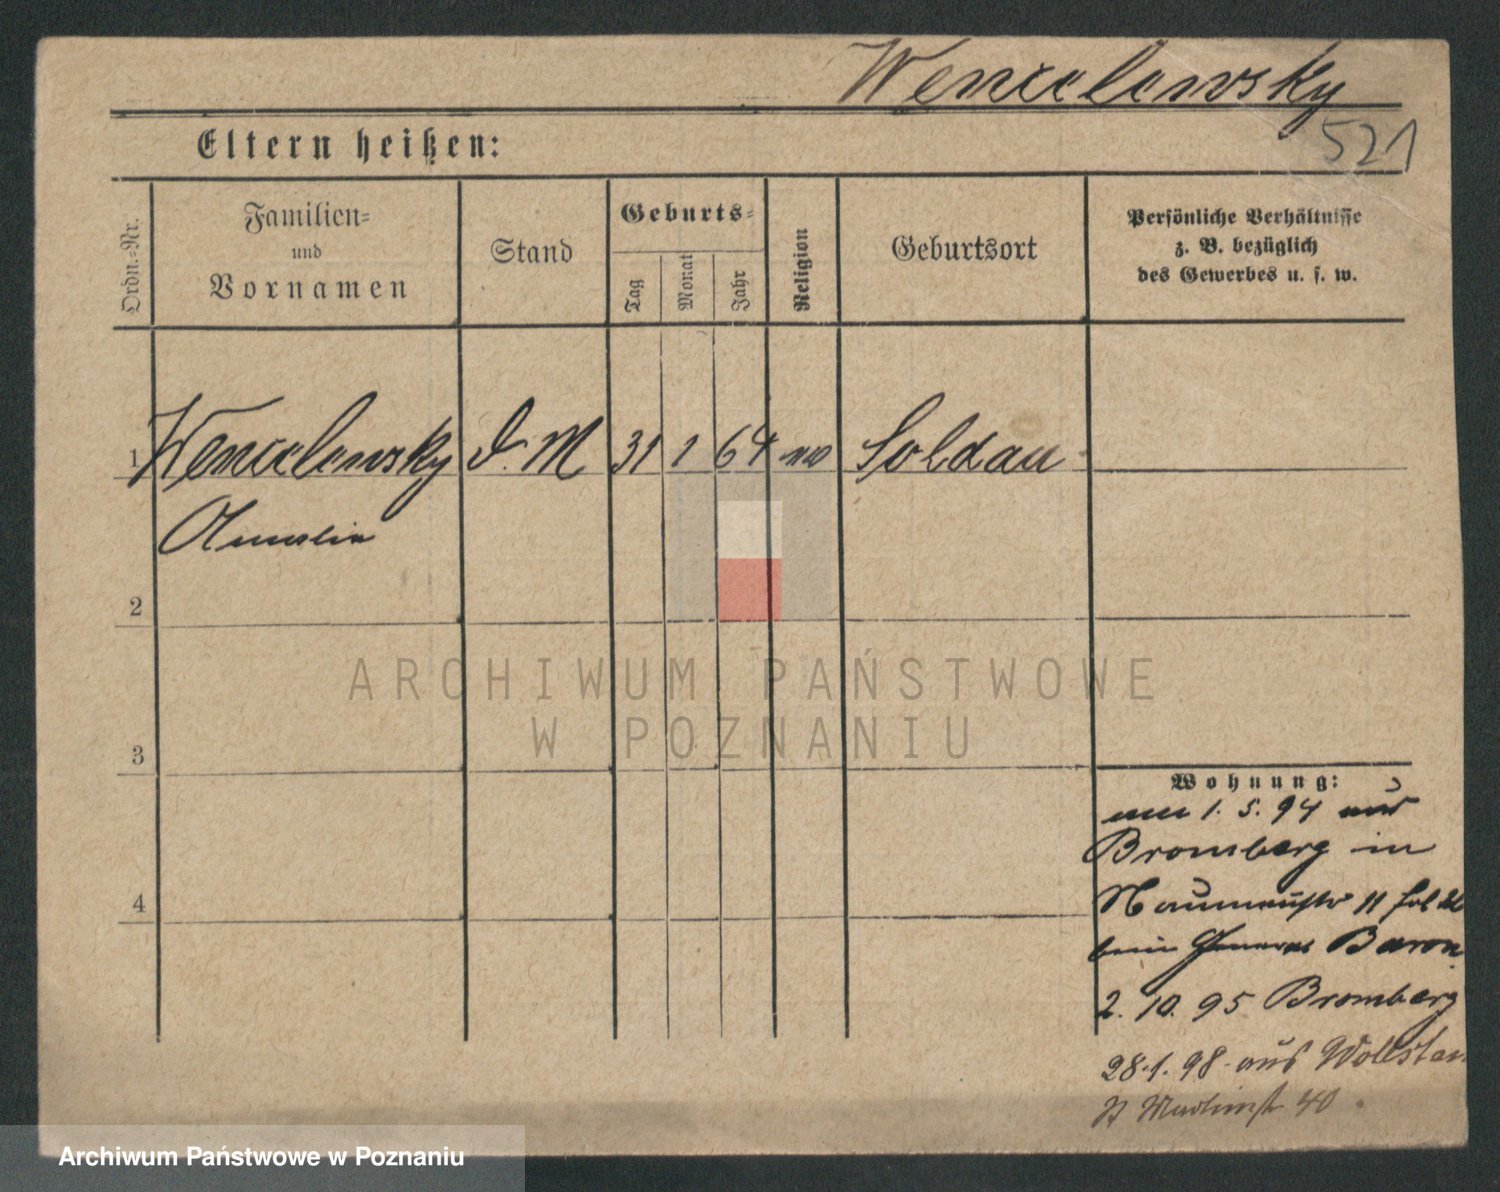 Wenclewsky
521
Eltern heißen:
Ordn.-Nr.
Familien-
und
Vornamen
Stand
Geburts-
Tag
Monat
Jahr
Religion
Geburtsort
Persönliche Verhältnisse
z. B. bezüglich
des Gewerbes u. s. w.
1 Wenclewsky D. M 31 1 64 Soldau
2
3
4
ARCHIWUM PAŃSTWOWE
W POZNANIU
Wohnung:
1. 5. 94 aus
Bromberg in
Naumannstr 11
beim General Baron
2. 10. 95 Bromberg
28.1. 98. aus Wollstein
St Martinstr 40
Archiwum Państwowe w Poznaniu